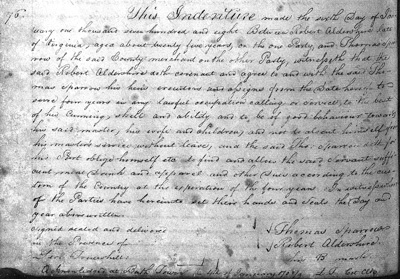 76. This Indenture made the sixth Day of Jan-
uary one thousand seven hundred and eight Between Robert Aldershire late
of Virginia, aged about twenty five years, on the one Party, and Thomas Spar-
row of the said County merchand on the other Party, witnesseth that the
said Robert Aldershire doth covenant and agree to and with the said Tho-
mas Sparrow his heirs executors and assigns from the Date hereof to
serve four years in any lawful occupation calling or service, to the best
of his Cunning, skill and ability and to be of good behaviour towards
his said master, his wife and children, and not to absent himself from
his master's service without leave, and the said Tho: Sparrow doth for
his Part oblige himself etc to find and allow the said Servant suffi-
cient meat Drink and apparel and other Dues according to the cus-
tom of the Country at the expiration of the four years. In
of the Parties have hereunto set their hands and Seals the Day and
year above written
signed sealed and delivered
in the Presence of
Thomas Sparrow
Robert Aldershire
his mark